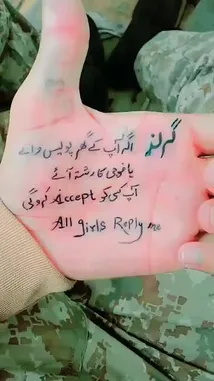 گرلز
اگر آپ کے گھر پولیس والے
یا فوجی کا رشتہ آئے
آپ کس کو Accept کروگی
All girls Reply me